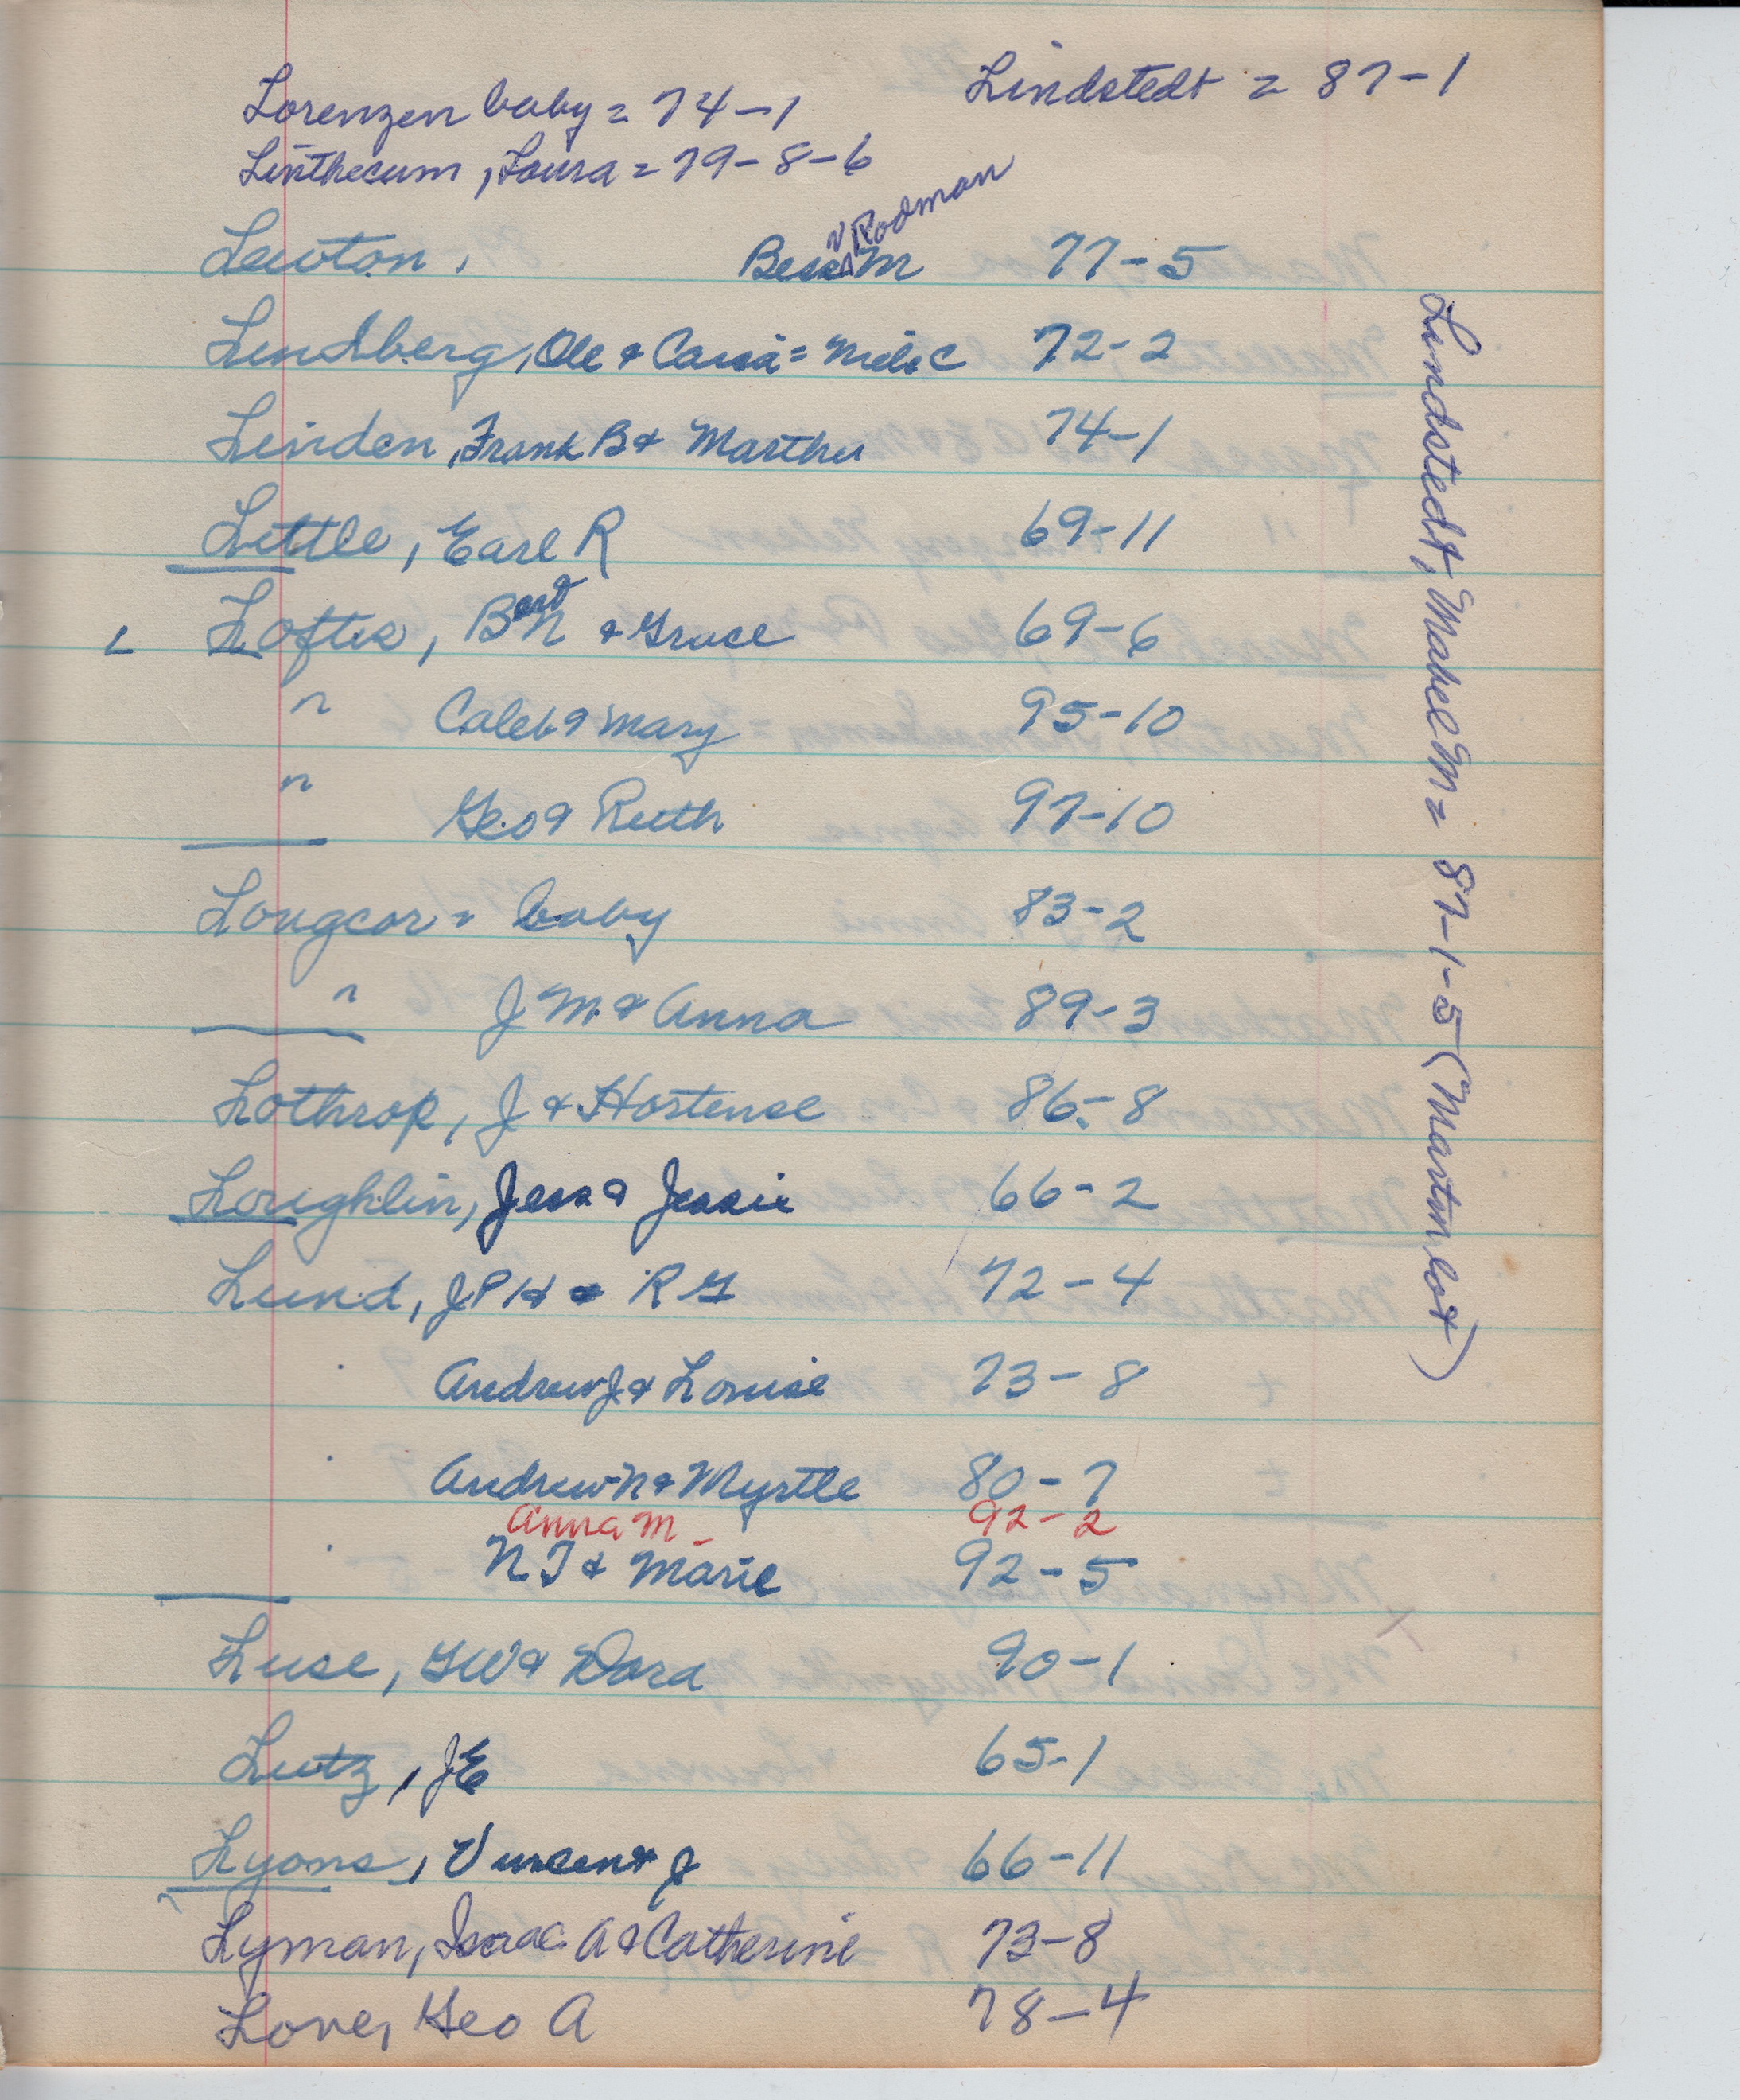 Lorenzen baby = 74-1
Lindstedt = 87-1
Linthecum, Loura = 79-8-6
Rodman
Lewton, Bess M 77-5
Lindberg, Ole & = C 72-2
Linden, Frank B & Martha 74-1
Little, Earl R 69-11
L Loftis, & Grace 69-6
" Caleb & Mary 95-10
" Geo & Ruth 97-10
Longcor = baby 83-2
" J M & Anna 89-3
Lothrop, J & Hortense 86-8
Loughlin, Jess & Jessie 66-2
Lund, J P H & R G 72-4
Andrew J & Louise 73-8
Andrew N & Myrtle 80-7
Anna M - 92-2
N J & Marie 92-5
Luse, GW & Dora 90-1
Lutz, JE 65-1
Lyons, Vincent J 66-11
Lyman, Isaac A & Catherine 73-8
Love, Geo A 78-4
Lindstedt, Mabel M = 87-1-5 (Marten lot)